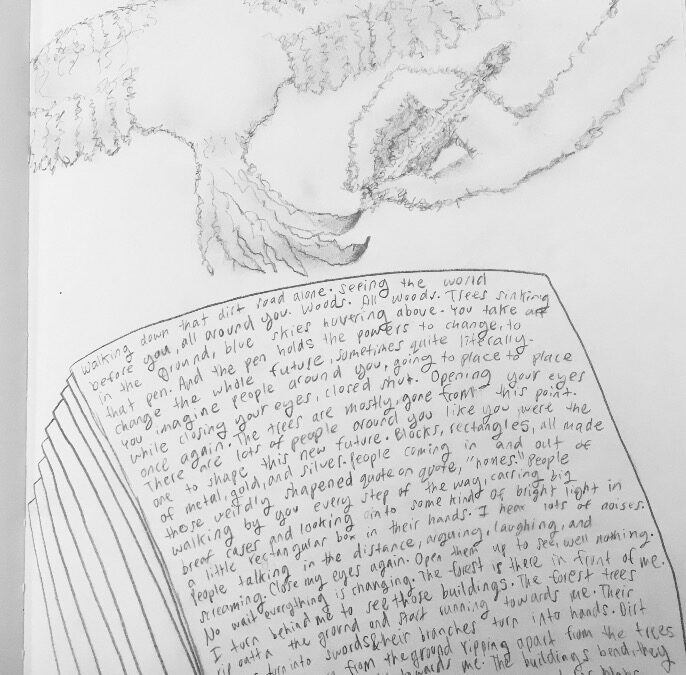 Walking down that dirt road alone. Seeing the world
before you, all around you. Woods. All woods. Trees sinking
in the ground, blue skies hovering above. You take out
that pen. And the pen holds the powers to change, to
change the whole future, sometimes quite literally.
You imagine people around you, going to place to place
while closing your eyes, closed shut. Opening your eyes
once again. The trees are mostly gone from this point.
There are lots of people around you like you were the
one to shape this new future. Blocks, rectangles, all made
of metal, gold, and silver. People coming in and out of
those weirdly shaped quote on quote, "homes." People
walking by you every step of the way, carring big
breaf cases and looking into some kind of bright light in
a little rectangular box in their hands. I hear lots of noises.
People talking in the distance, arguing, laughing, and
screaming. Close my eyes again. Open them up to see, well nothing.
No wait everything is changing. The forest is there in front of me.
I turn behind me to see those buildings. The forest trees
rip outta the ground and start running towards me. Their
turn into swords & their branches turn into hands. Dirt
from the ground ripping apart from the trees
towards me. The buildings bend, they